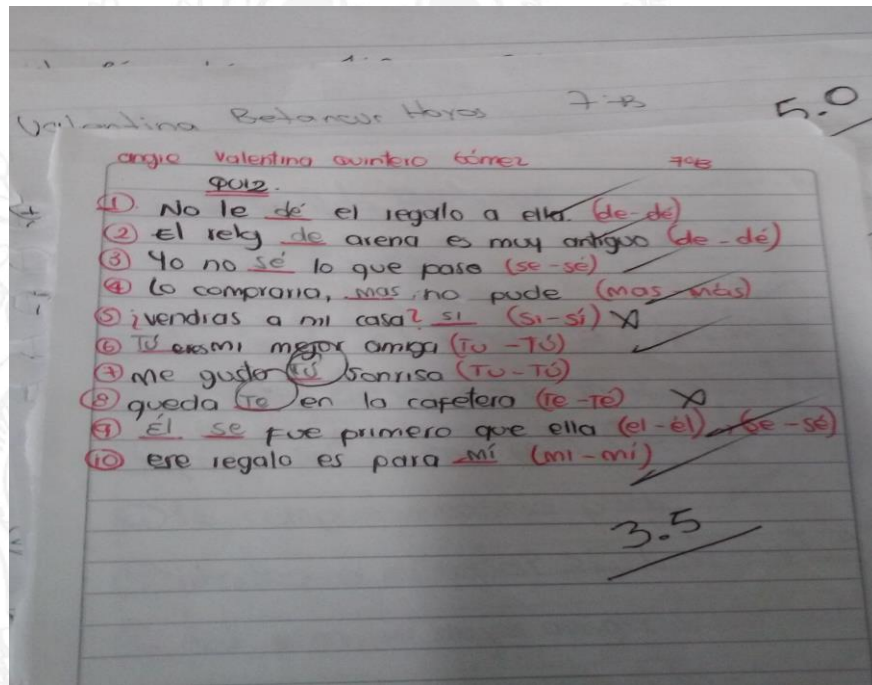 Valentina Betancur Hoyos 7-B
5.0
angie valentina quintero Gómez 7ºB
QUIZ.
① No le dé el regalo a ella. (de-dé)
② El reloj de arena es muy antiguo (de-dé)
③ Yo no sé lo que paso (se-sé)
④ Lo compraria, mas no pude (mas-más)
⑤ ¿vendrias a mi casa? si (si-sí) X
⑥ Tú eres mi mejor amiga (TU-TÚ)
⑦ me gusta tú sonrisa (TU-TÚ)
⑧ queda Te en la cafetera (Te-Té) X
⑨ Él se fue primero que ella (el-él) (se-sé)
⑩ ese regalo es para mí (mi-mí)
3.5